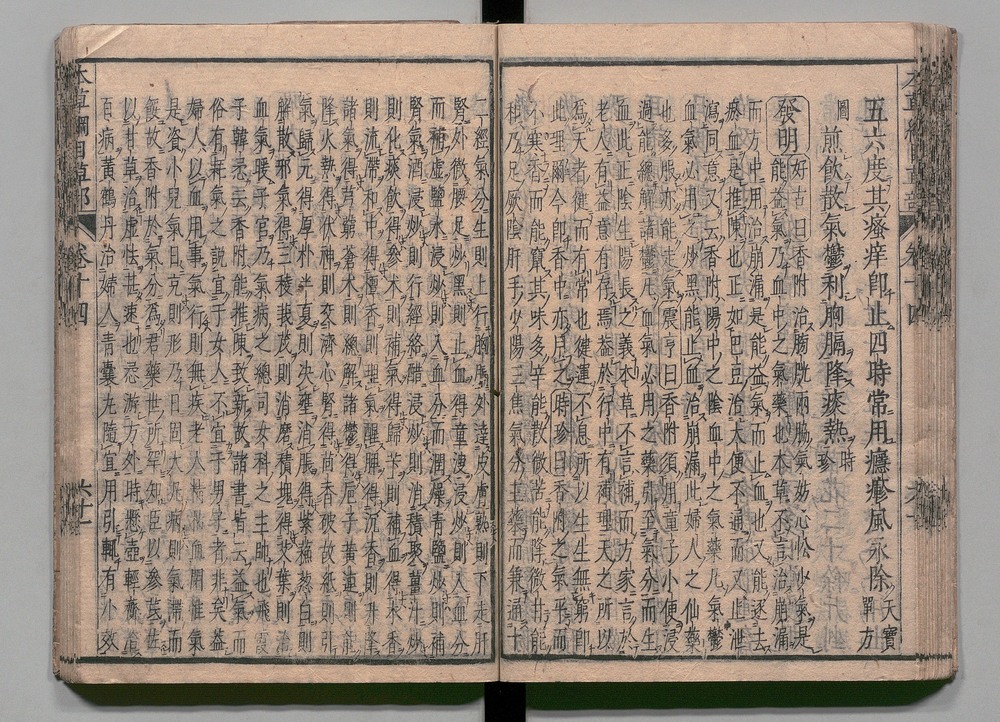 五六度其瘙痒即止四時常用癮疹風永除天寶單方
圖 煎飲散氣鬱利胸膈降痰熱時珍
發明 好古曰香附治膀胱兩脇氣妨心忪少氣是
能益氣乃血中之氣藥也本草不言治崩漏
而方中用治崩漏是能益氣而止血也又能逐去
瘀血是推陳也正如巴豆治大便不通而又止泄
瀉同意又云香附陽中之陰血中之氣藥凡氣鬱
血氣必用之炒黑能止血治崩漏此婦人之仙藥
也多服亦能走氣震亨曰香附須用童子小便浸
過能總解諸鬱凡血氣必用之藥引至氣分而生
血此正陰生陽長之義本草不言補而方家言於
老人有益意有存焉蓋於行中有補理天之所以
為天者健而有常也健運不息所以生生無窮即
此理爾今即香中亦用之時珍曰香附之氣平而
不寒香而能竄其味多辛能散微苦能降微甘能
和乃足厥陰肝手少陽三焦氣分主藥而兼通十
二經氣分生則上行胸膈外達皮膚熟則下走肝
腎外徹腰足炒黑則止血得童溲浸炒則入血分
而補虛鹽水浸炒則入血分而潤燥青鹽炒則補
腎氣酒浸炒則行經絡醋浸炒則消積聚薑汁炒
則化痰飲得參朮則補氣得歸芐則補血得木香
則流滯和中得檀香則理氣醒脾得沉香則升降
諸氣得芎藭蒼朮則總解諸鬱得梔子黃連則能
降火熱得伏神則交濟心腎得茴香破故紙則引
氣歸元得厚朴半夏則決壅消脹得紫蘇葱白則
解散邪氣得三稜莪茂則消磨積塊得艾葉則治
血氣暖子宮乃氣病之總司女科之主帥也飛霞
子韓悉云香附能推陳致新故諸書皆云益氣而
俗有耗氣之說宜于女人不宜于男子者非矣蓋
婦人以血用事氣行則無疾老人精枯血閉惟氣
是資小兒氣日充則形乃日固大凡病則氣滯而
餒故香附於氣分為君藥世所罕知臣以參芪佐
以甘草治虛怯甚速也忌游方外時懸壺輕齎治
百病黃鶴丹治婦人青囊丸隨宜用引輒有小效
本草綱目草部 卷十四 六十一